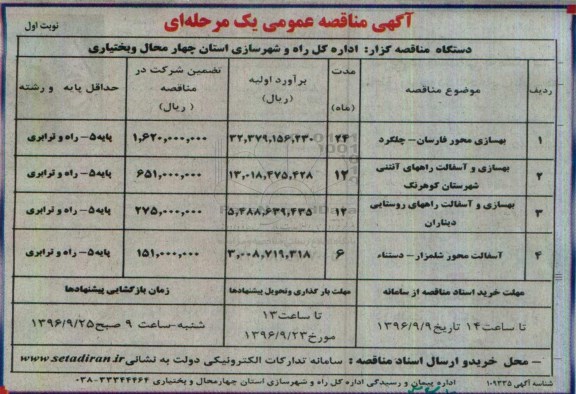 آگهی مناقصه عمومی یک مرحله‌ای
نوبت اول
دستگاه مناقصه گزار: اداره کل راه و شهرسازی استان چهار محال وبختیاری
ردیف | موضوع مناقصه | مدت (ماه) | برآورد اولیه (ریال) | تضمین شرکت در مناقصه (ریال) | حداقل پایه و رشته
۱ | بهسازی محور فارسان- چلگرد | ۲۴ | ۳۲,۳۷۹,۱۵۶,۲۳۰ | ۱,۶۲۰,۰۰۰,۰۰۰ | پایه۵- راه و ترابری
۲ | بهسازی و آسفالت راههای آئتنی شهرستان کوهرنگ | ۱۲ | ۱۳,۰۱۸,۴۷۵,۴۲۸ | ۶۵۱,۰۰۰,۰۰۰ | پایه۵- راه و ترابری
۳ | بهسازی و آسفالت راههای روستایی دیناران | ۱۲ | ۵,۴۸۸,۶۳۹,۴۳۵ | ۲۷۵,۰۰۰,۰۰۰ | پایه۵- راه و ترابری
۴ | آسفالت محور شلمزار- دستناء | ۶ | ۳,۰۰۸,۷۱۹,۳۱۸ | ۱۵۱,۰۰۰,۰۰۰ | پایه۵- راه و ترابری
مهلت خرید اسناد مناقصه از سامانه | مهلت بارگذاری وتحویل پیشنهادها | زمان بازگشایی پیشنهادها
تا ساعت۱۴ تاریخ۱۳۹۶/۹/۹ | تا ساعت۱۳ مورخ۱۳۹۶/۹/۲۳ | شنبه-ساعت ۹ صبح۱۳۹۶/۹/۲۵
- محل خریدو ارسال اسناد مناقصه : سامانه تدارکات الکترونیکی دولت به نشانی www.setadiran.ir
شناسه آگهی ۱۰۹۳۳۵
اداره پیمان و رسیدگی اداره کل راه و شهرسازی استان چهارمحال و بختیاری ۳۳۳۴۴۴۶۴-۰۳۸